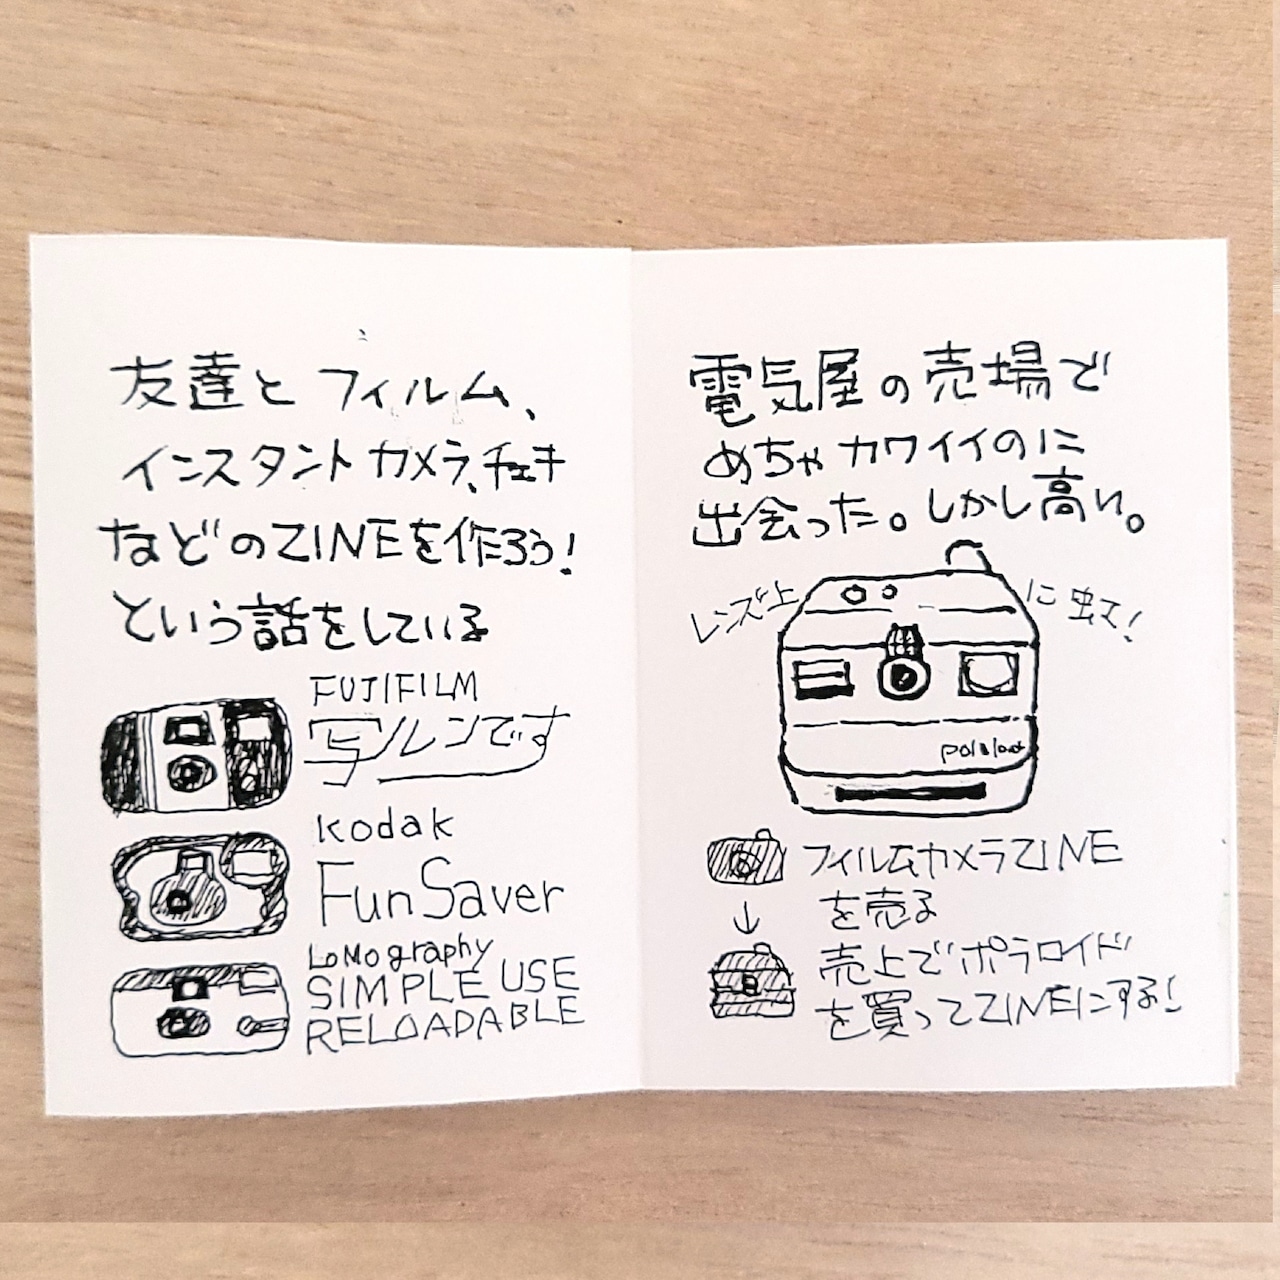 友達とフィルム、
インスタントカメラ、チェキ
などのZINEを作ろう!
という話をしている
FUJIFILM
写ルンです
Kodak
FunSaver
LOMOgraphy
SIMPLE USE
RELOADABLE
電気屋の売場で
めちゃカワイイのに
出会った。しかし高い。
レンズ上に虫て!
フィルムカメラZINE
を売る
↓
売上でポラロイド
を買ってZINEにする!